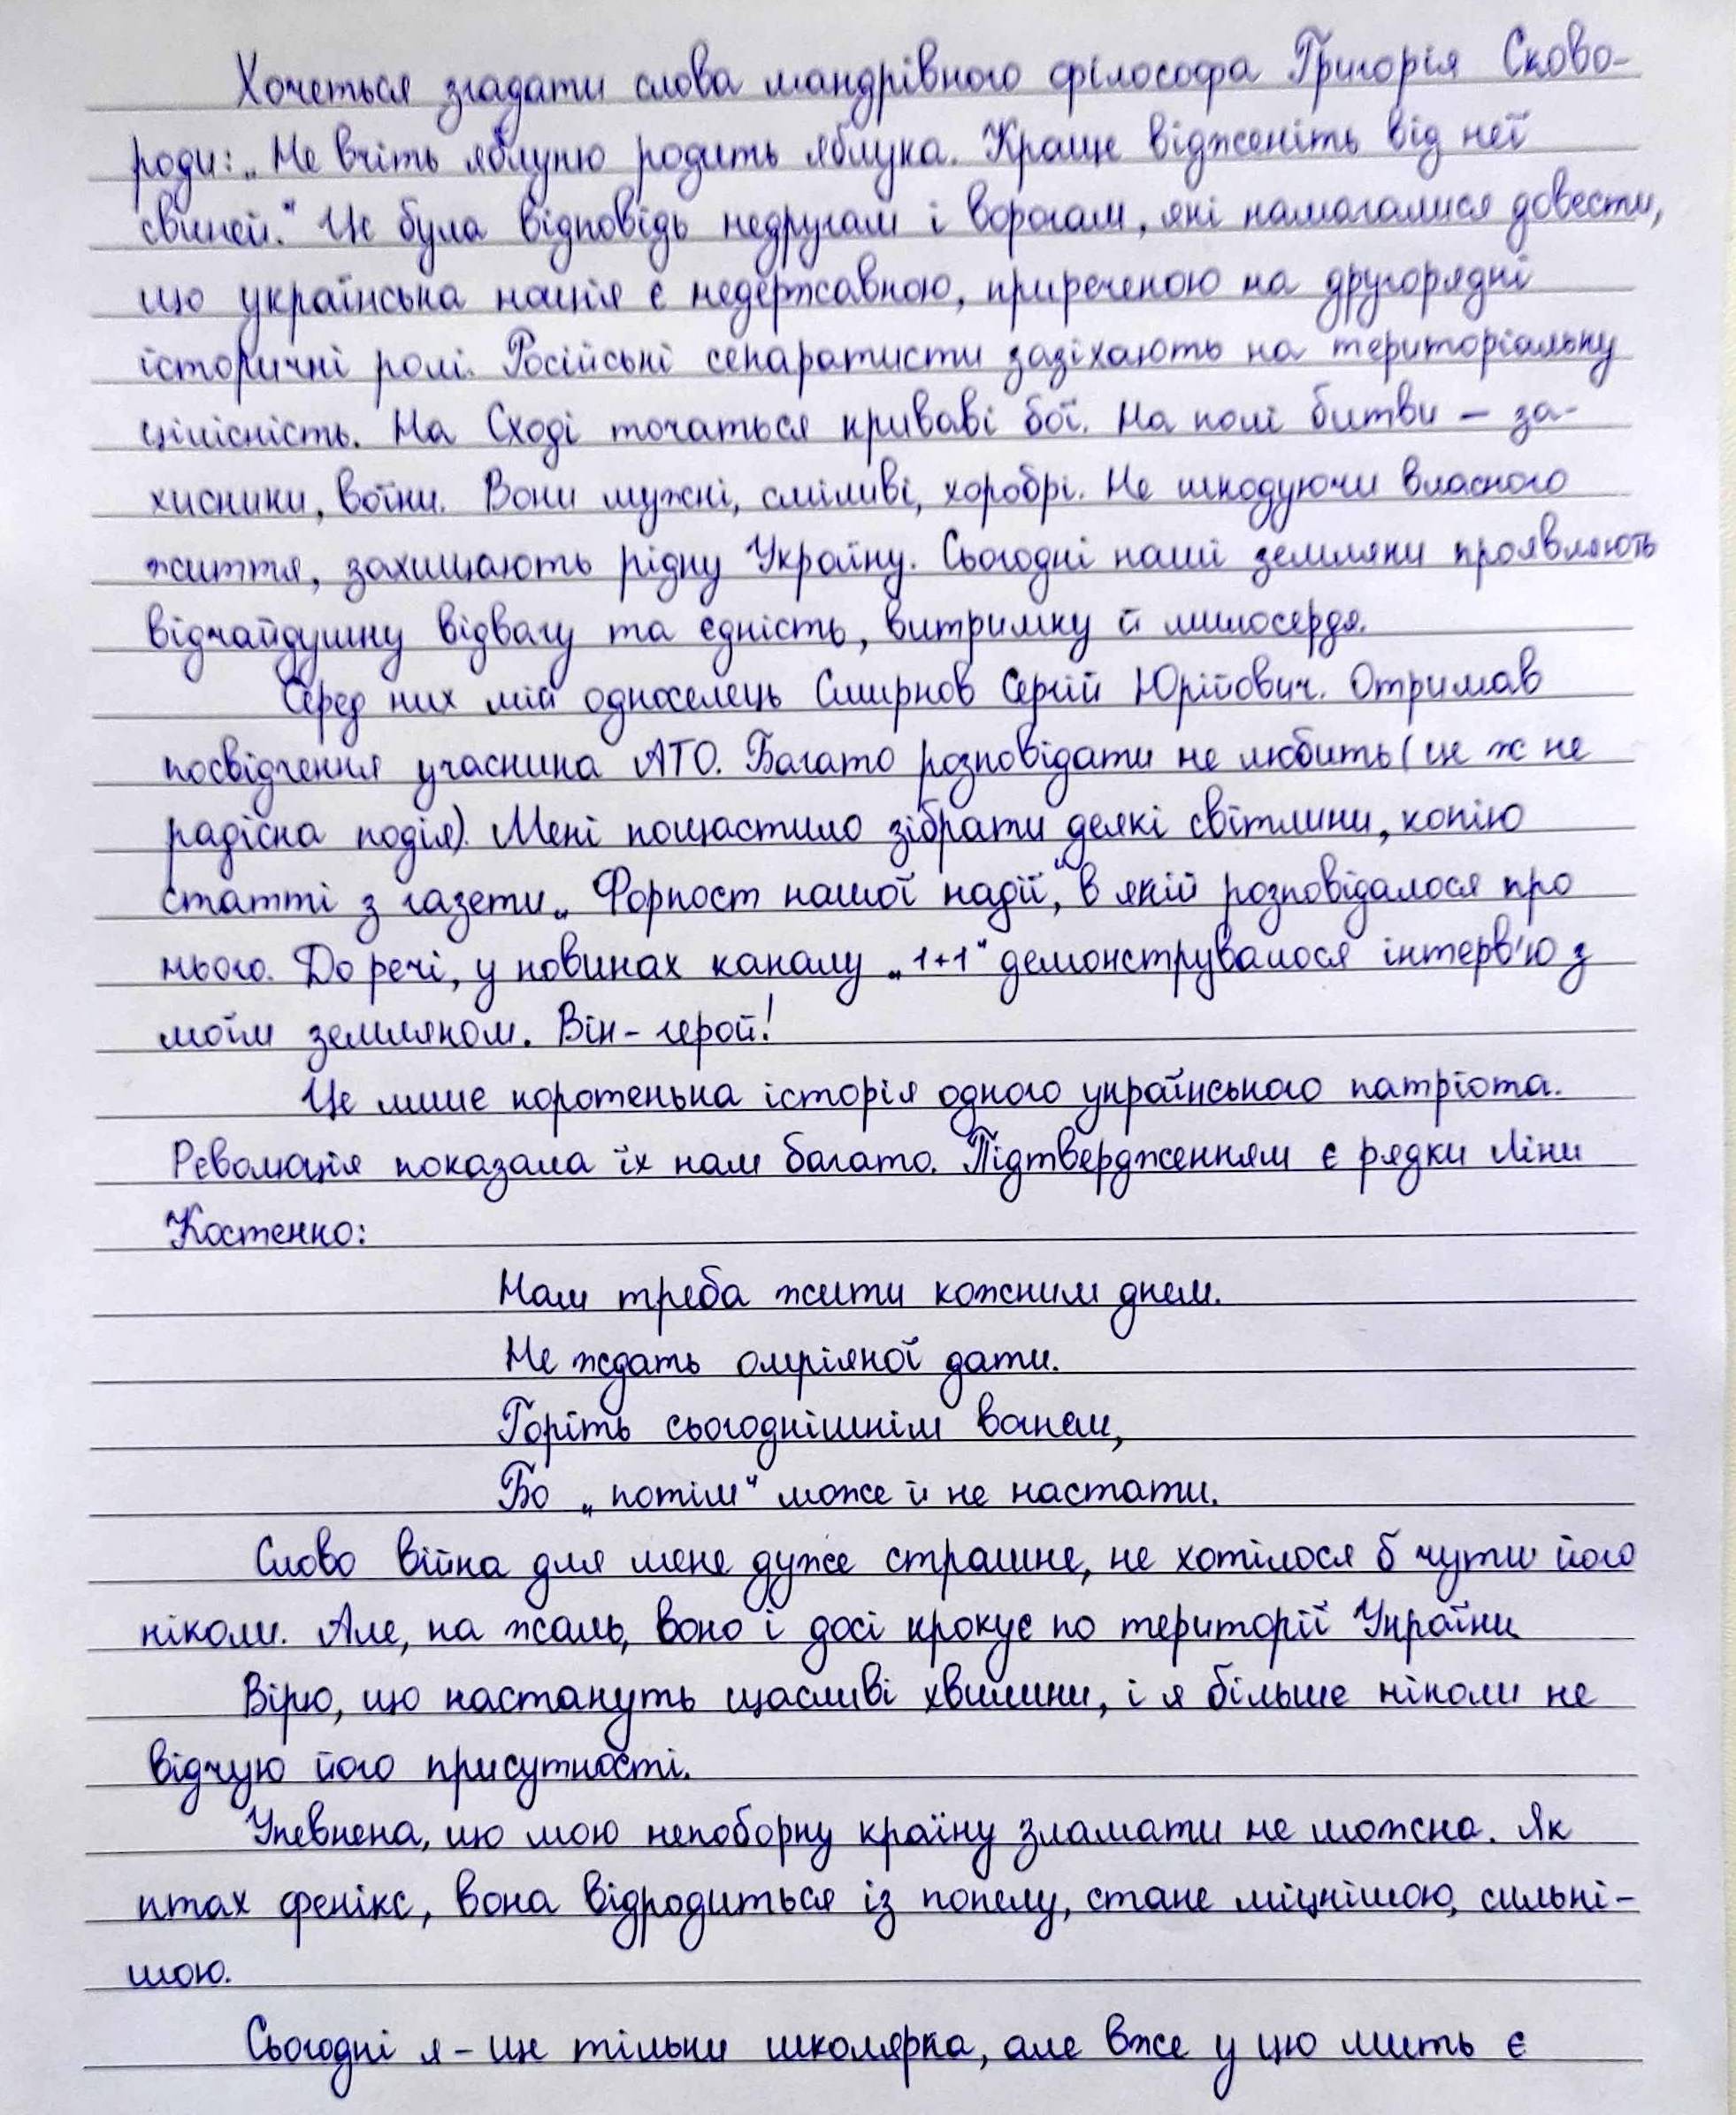 Хочеться згадати слова мандрівного філософа Григорія Сково-
роди: „Не вчіть яблуню родить яблука. Краще відженіть від неї
свиней." Це була відповідь недругам і ворогам, які намагалися довести,
що українська нація є недержавною, приреченою на другорядні
історичні ролі. Російські сепаратисти зазіхають на територіальну
цілісність. На Сході точаться криваві бої. На полі битви – за-
хисники, воїни. Вони мужні, сміливі, хоробрі. Не шкодуючи власного
життя, захищають рідну Україну. Сьогодні наші земляки проявляють
відчайдушну відвагу та єдність, витримку й милосердя.
Серед них мій односелець Смирнов Сергій Юрійович. Отримав
посвідчення учасника АТО. Багато розповідати не любить (це ж не
радісна подія). Мені пощастило зібрати деякі світлини, копію
статті з газети „Форпост нашої надії", в якій розповідалося про
нього. До речі, у новинах каналу „1+1" демонструвалося інтерв'ю з
моїм земляком. Він – герой!
Це лише коротенька історія одного українського патріота.
Революція показала їх нам багато. Підтвердженням є рядки Ліни
Костенко:
Нам треба жити кожним днем.
Не ждать омріяної дати.
Горіть сьогоднішнім вогнем,
Бо „потім" може й не настати.
Слово війна для мене дуже страшне, не хотілося б чути його
ніколи. Але, на жаль, воно і досі крокує по території України
Вірю, що настануть щасливі хвилини, і я більше ніколи не
відчую його присутності.
Упевнена, що мою непоборну країну зламати не можна. Як
птах фенікс, вона відродиться із попелу, стане міцнішою, сильні-
шою.
Сьогодні я – ще тільки школярка, але вже у цю мить є